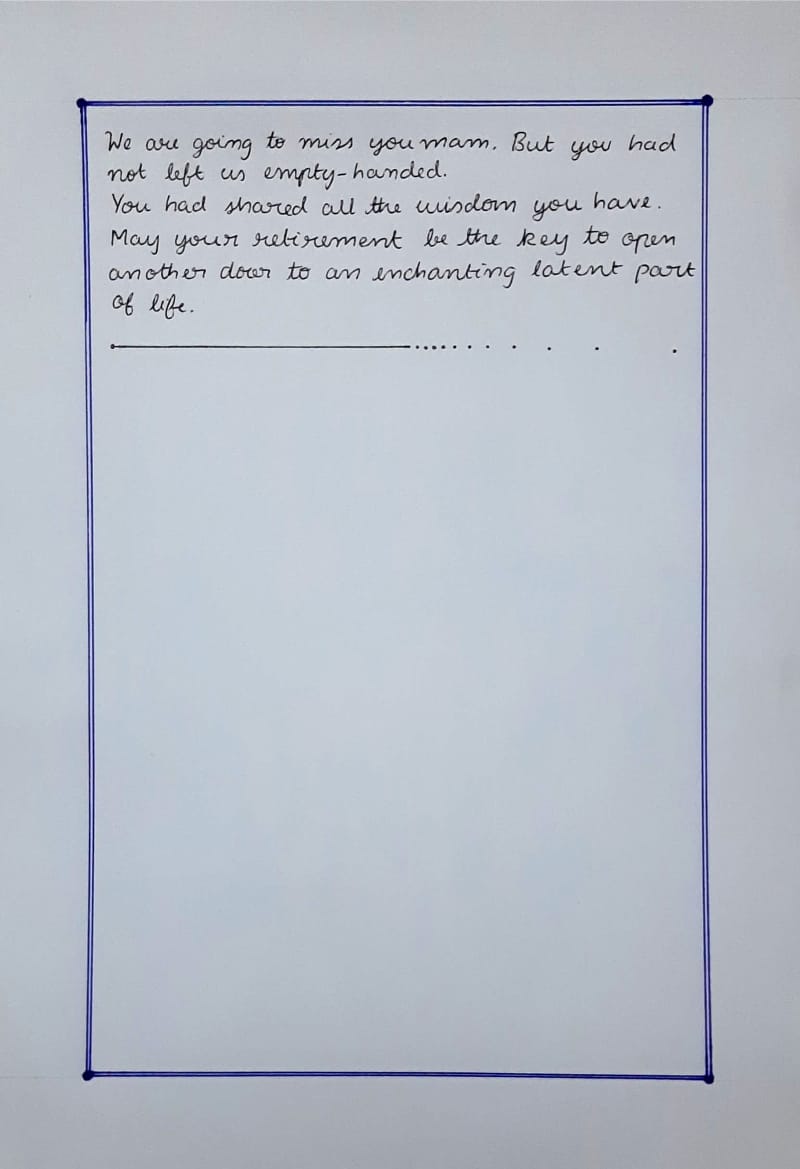 We are going to miss you mam. But you had
not left us empty-handed.
You had shared all the wisdom you have.
May your retirement be the key to open
another door to an enchanting latent part
of life.